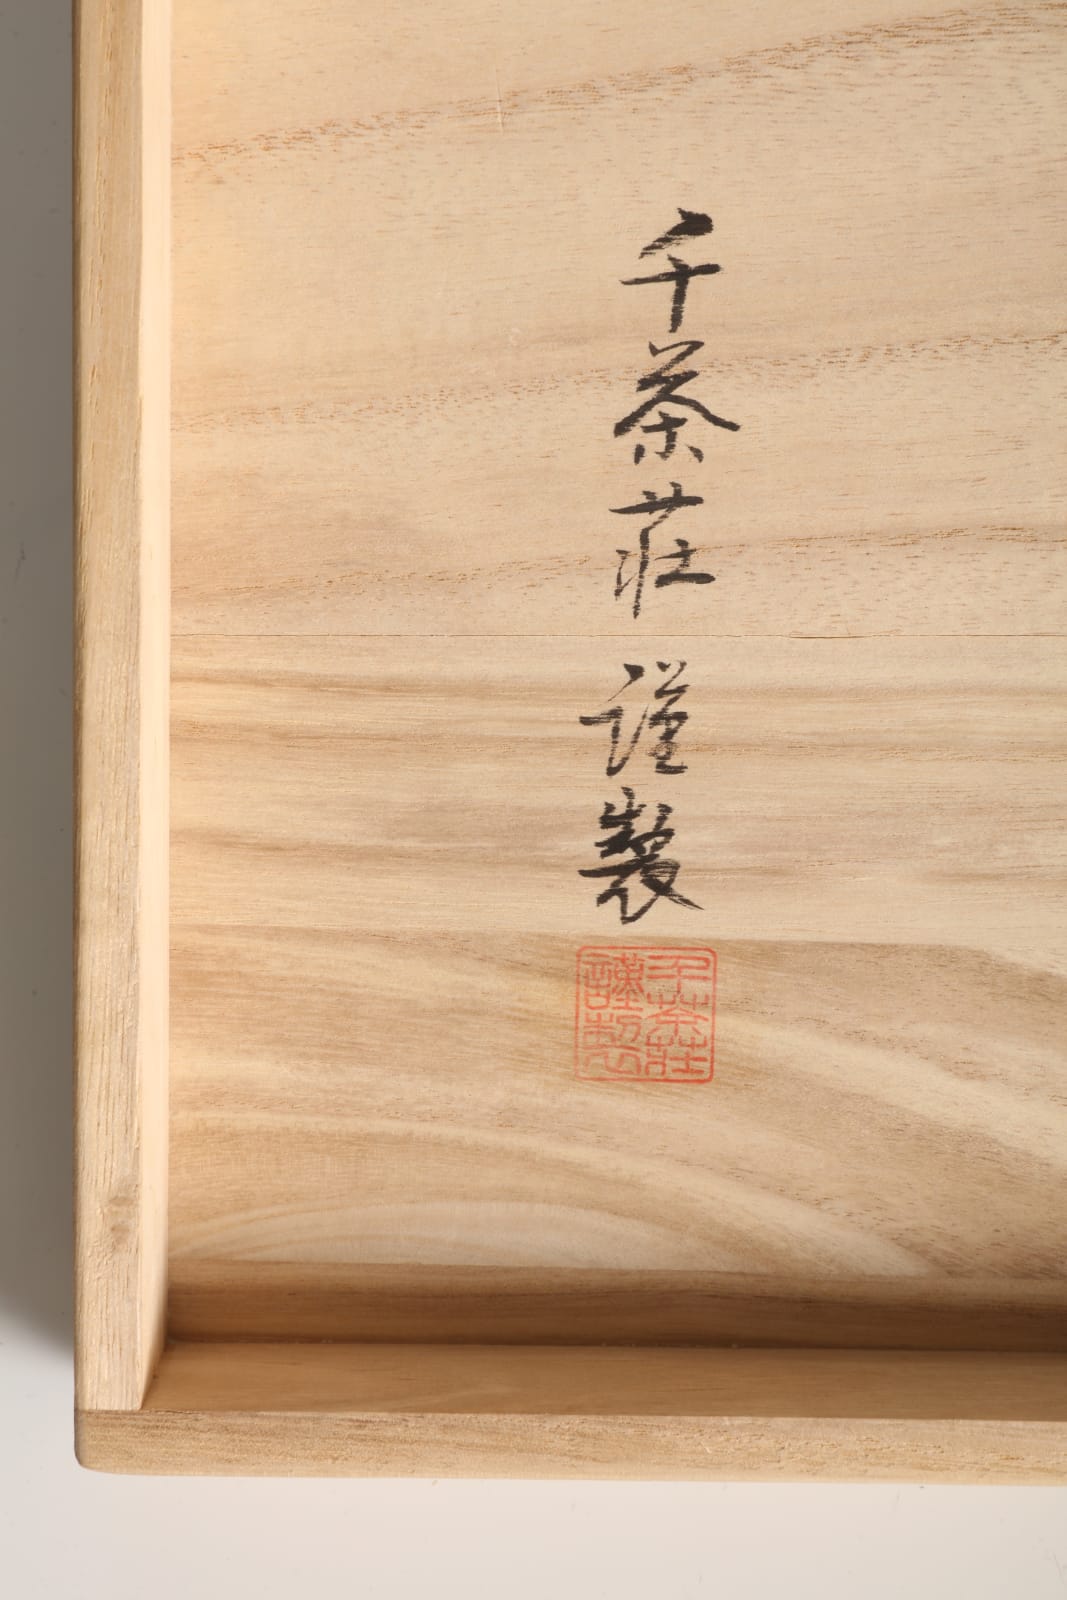 千茶荘 謹製
千茶荘
謹製